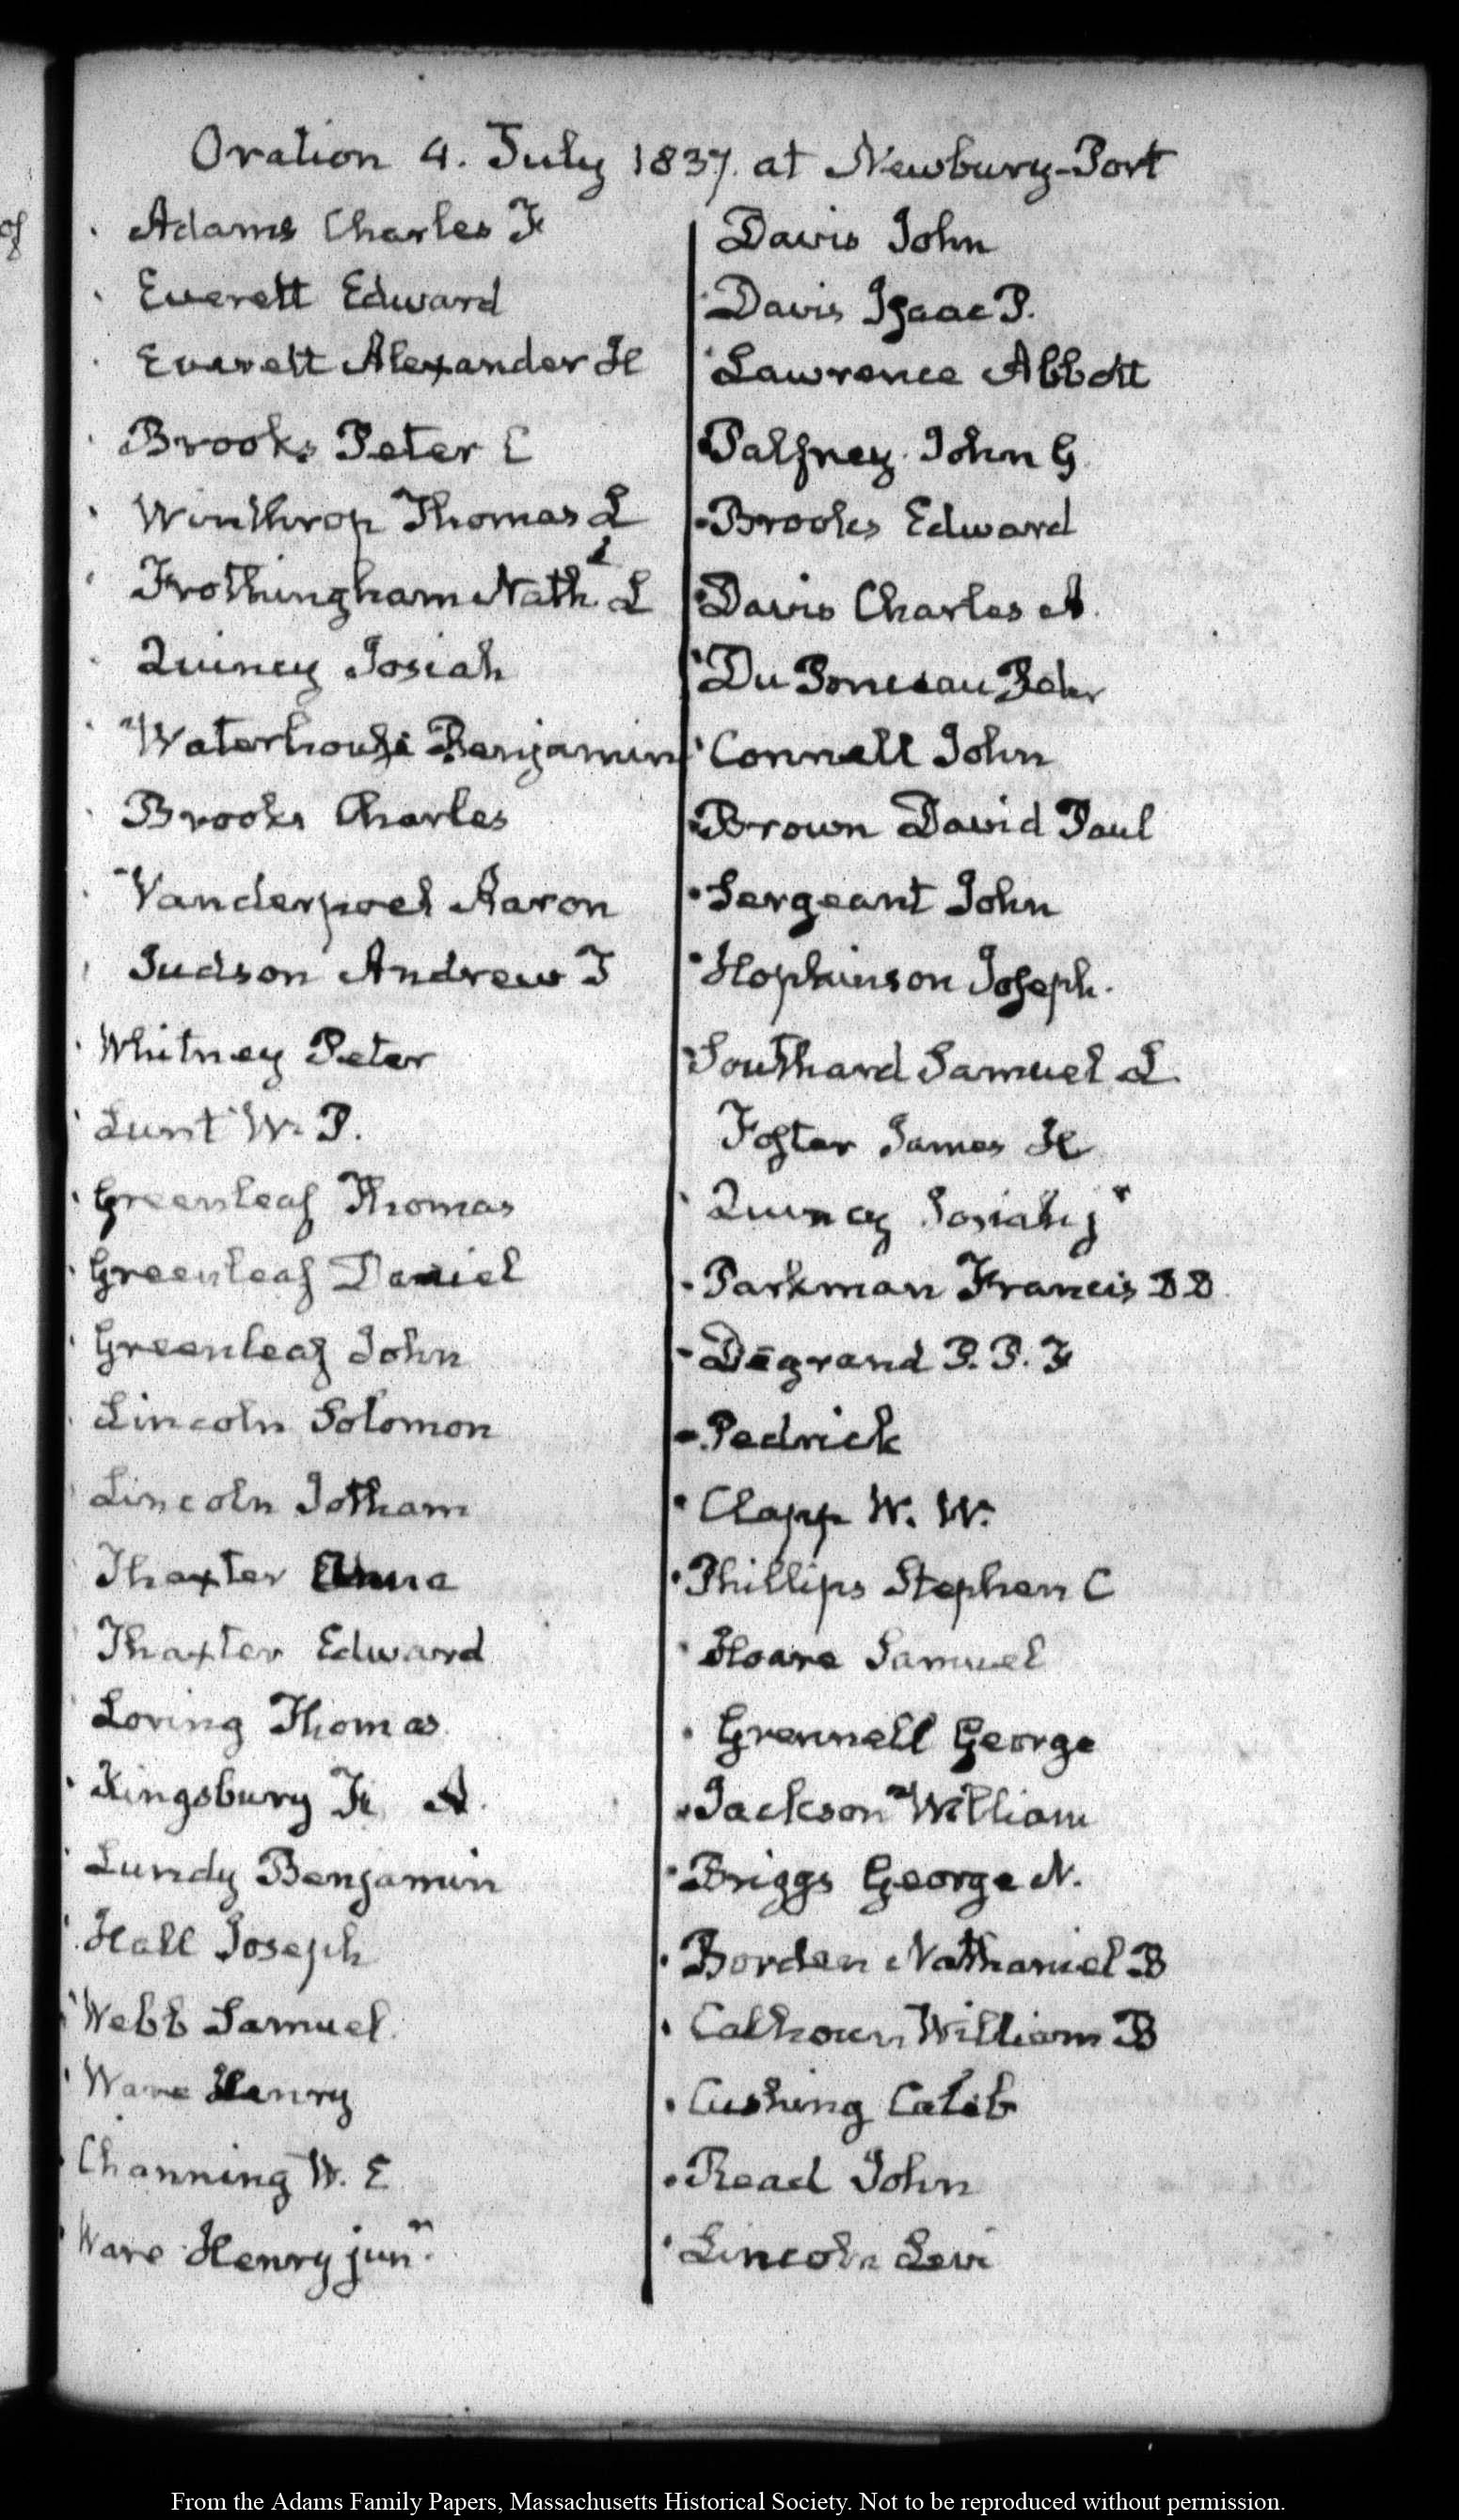 of
Oration 4. July 1837. at Newbury-Port
Adams Charles F
Everett Edward
Everett Alexander H
Brooks Peter C
Winthrop Thomas L
Frothingham Nathl. L
Quincy Josiah
Waterhouse Benjamin
Brooks Charles
Vanderpoel Aaron
Judson Andrew T
Whitney Peter
Lunt W. P.
Greenleaf Thomas
Greenleaf Daniel
Greenleaf John
Lincoln Solomon
Lincoln Jotham
Thaxter Anna
Thaxter Edward
Loring Thomas
Kingsbury Fk. A.
Lundy Benjamin
Hall Joseph
Webb Samuel
Ware Henry
Channing W. E
Ware Henry junr.
Davis John
Davis Isaac P.
Lawrence Abbott
Palfrey John G
Brooks Edward
Davis Charles A.
Du Ponceau Peter
Connell John
Brown David Paul
Sergeant John
Hopkinson Joseph.
Southard Samuel L.
Foster James H
Quincy Josiah jr
Parkman Francis DD
Degrand P. P. F
Pedrick
Clapp W. W.
Phillips Stephen C
Hoare Samuel
Grennell George
Jackson William
Briggs George N.
Borden Nathaniel B
Calhoun William B
Cushing Caleb
Read John
Lincoln Levi
From the Adams Family Papers, Massachusetts Historical Society. Not to be reproduced without permission.